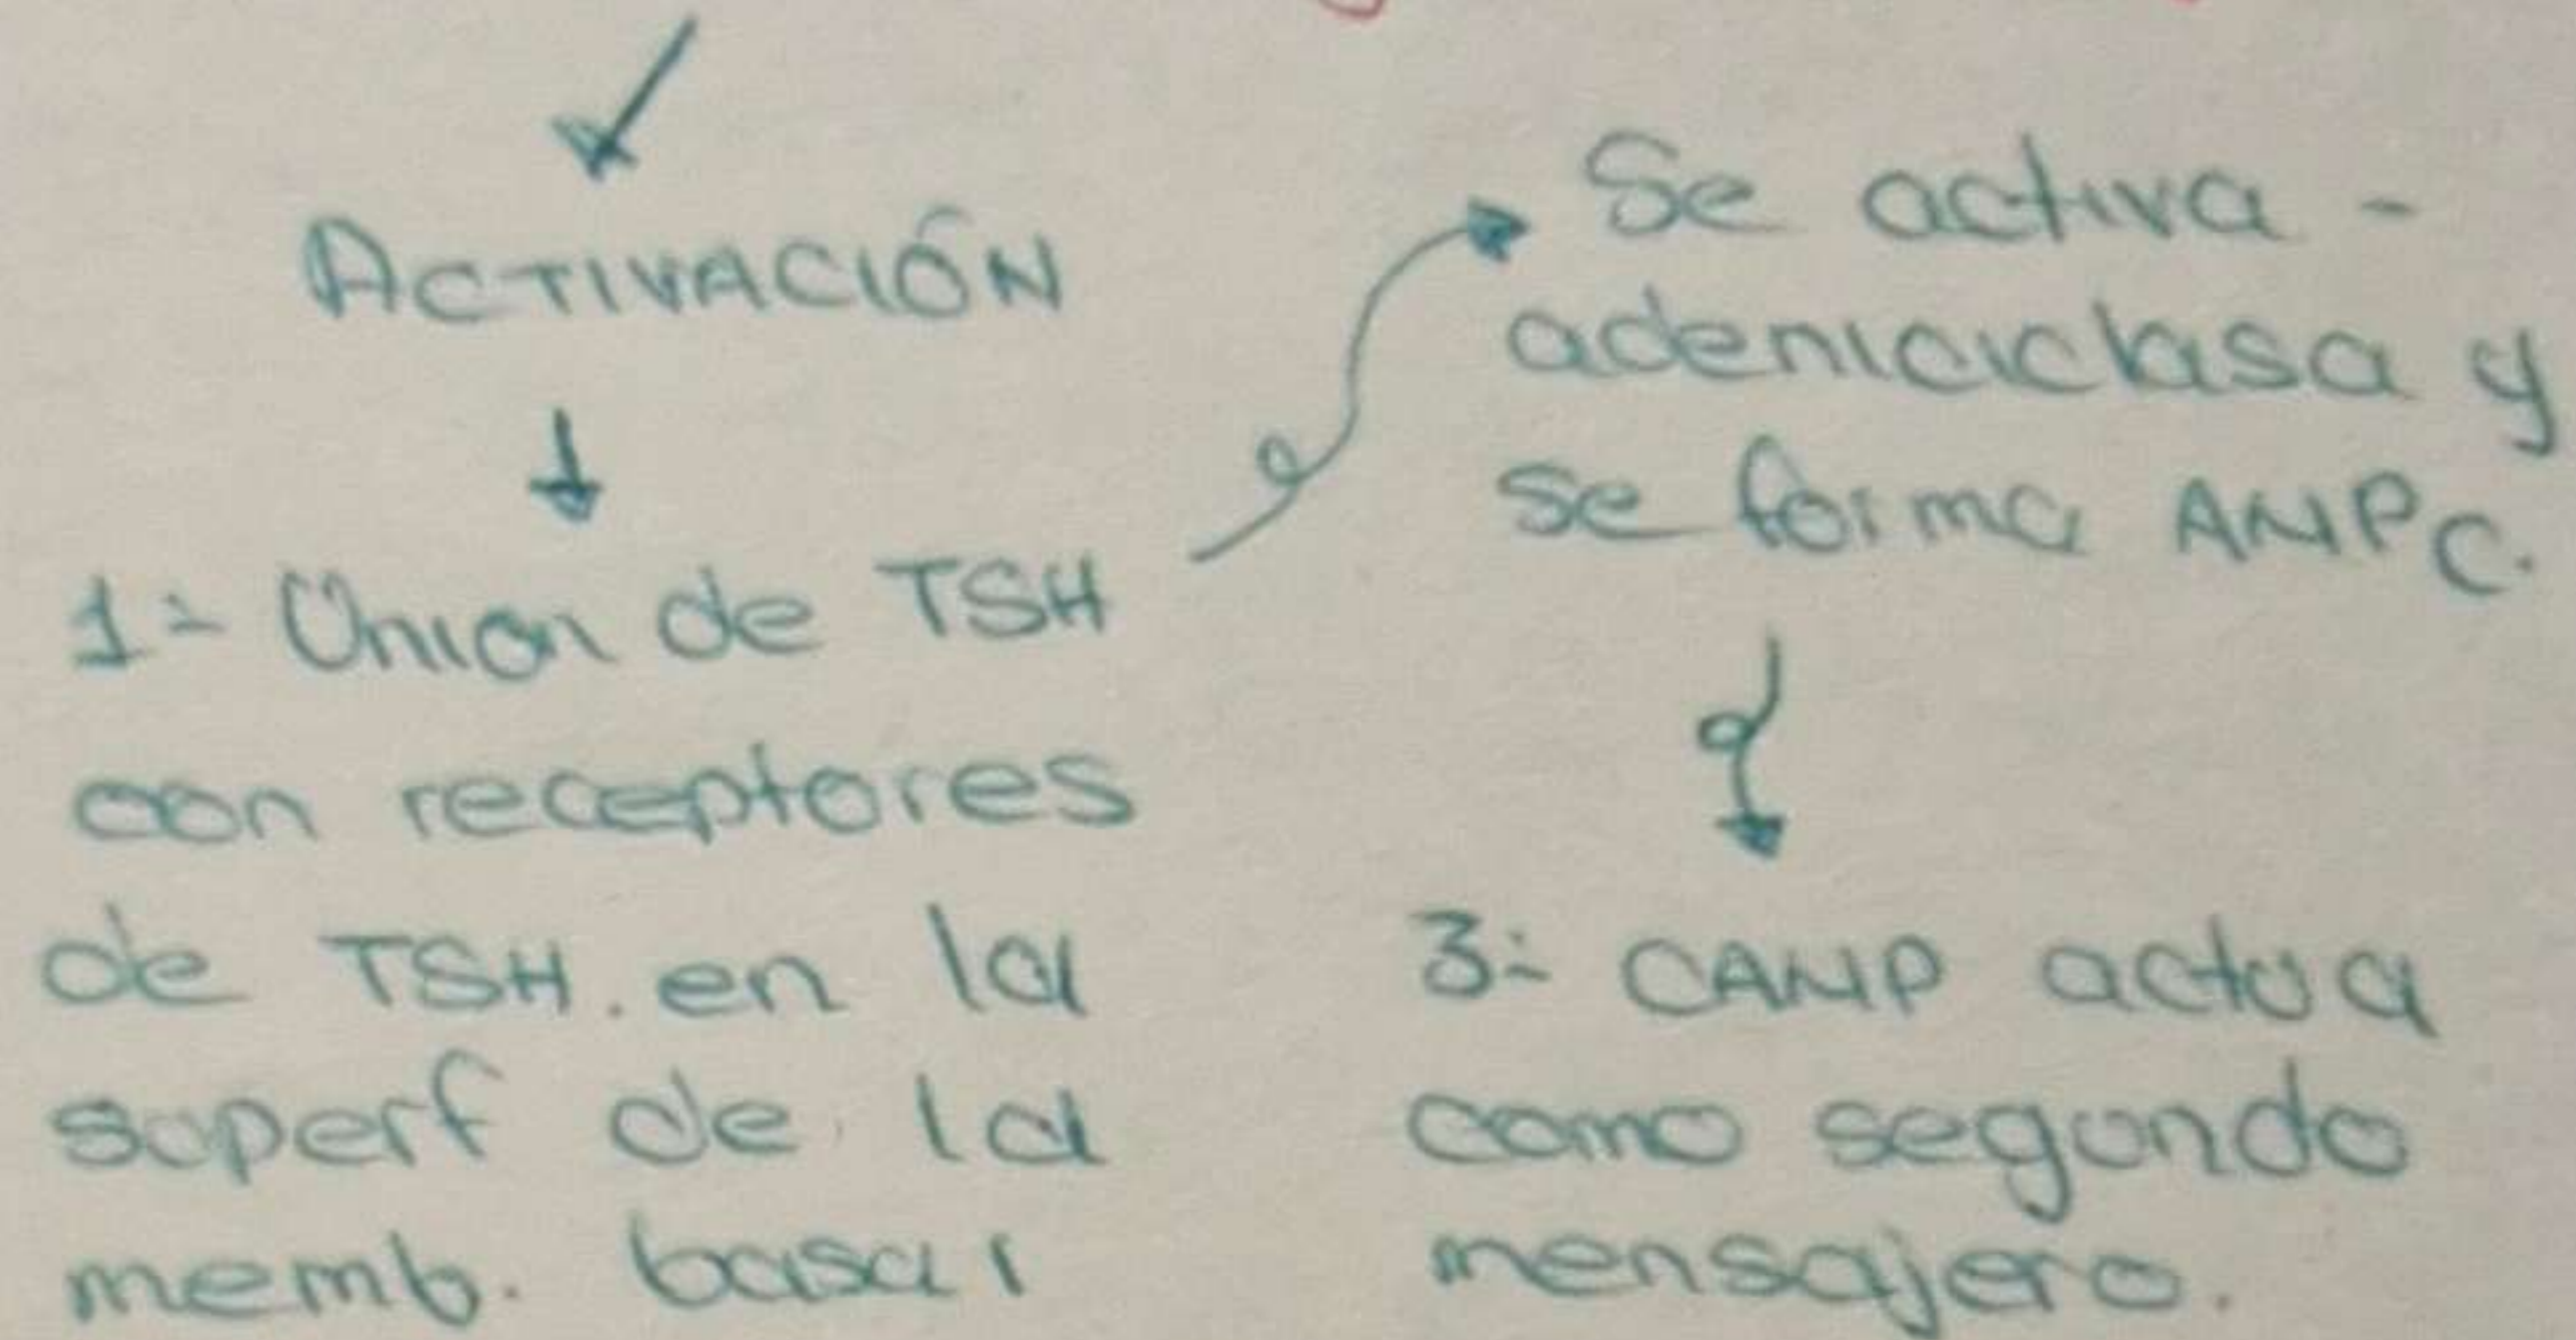 ACTIVACIÓN
1- Union de TSH
con receptores
de TSH. en la
superf de la
memb. basal
Se activa -
adeniciclasa y
se forma AMPc.
3- CAMP actua
como segundo
mensajero.